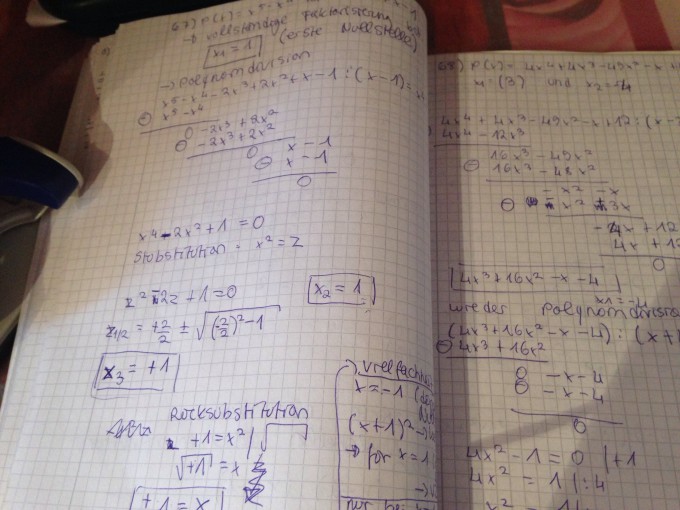 67) P(x) = x⁵ - x⁴
→ vollständige Faktorisierung
x₁ = 1 (erste Nullstelle)
→ Polynomdivision
x⁵ - x⁴ - 2x³ + 2x² + x - 1 : (x - 1) =
⊖ x⁵ - x⁴
0 - 2x³ + 2x²
⊖ - 2x³ + 2x²
0 x - 1
⊖ x - 1
0
x⁴ - 2x² + 1 = 0
Substitution: x² = z
z² - 2z + 1 = 0
x₂ = 1
z₁/₂ = +2/2 ± √(-2/2)² - 1
x₃ = +1
Rücksubstitution
+1 = x² | √
√+1 = x
+1 = x
→ Vielfachhei
x = -1
(x + 1)² →
→ for x = 1
68) P(x) = 4x⁴ + 4x³ - 49x² - x + 12
x₁ = (3) und x₂ = -4
4x⁴ + 4x³ - 49x² - x + 12 : (x -
4x⁴ - 12x³
16x³ - 49x²
⊖ 16x³ - 48x²
- x² - x
⊖ - x² + 3x
- 4x + 12
4x + 12
0
4x³ + 16x² - x - 4
x₁ = -4
wieder Polynomdivision
(4x³ + 16x² - x - 4) : (x +
⊖ 4x³ + 16x²
0 - x - 4
⊖ - x - 4
0
4x² - 1 = 0 | +1
4x² = 1 | : 4